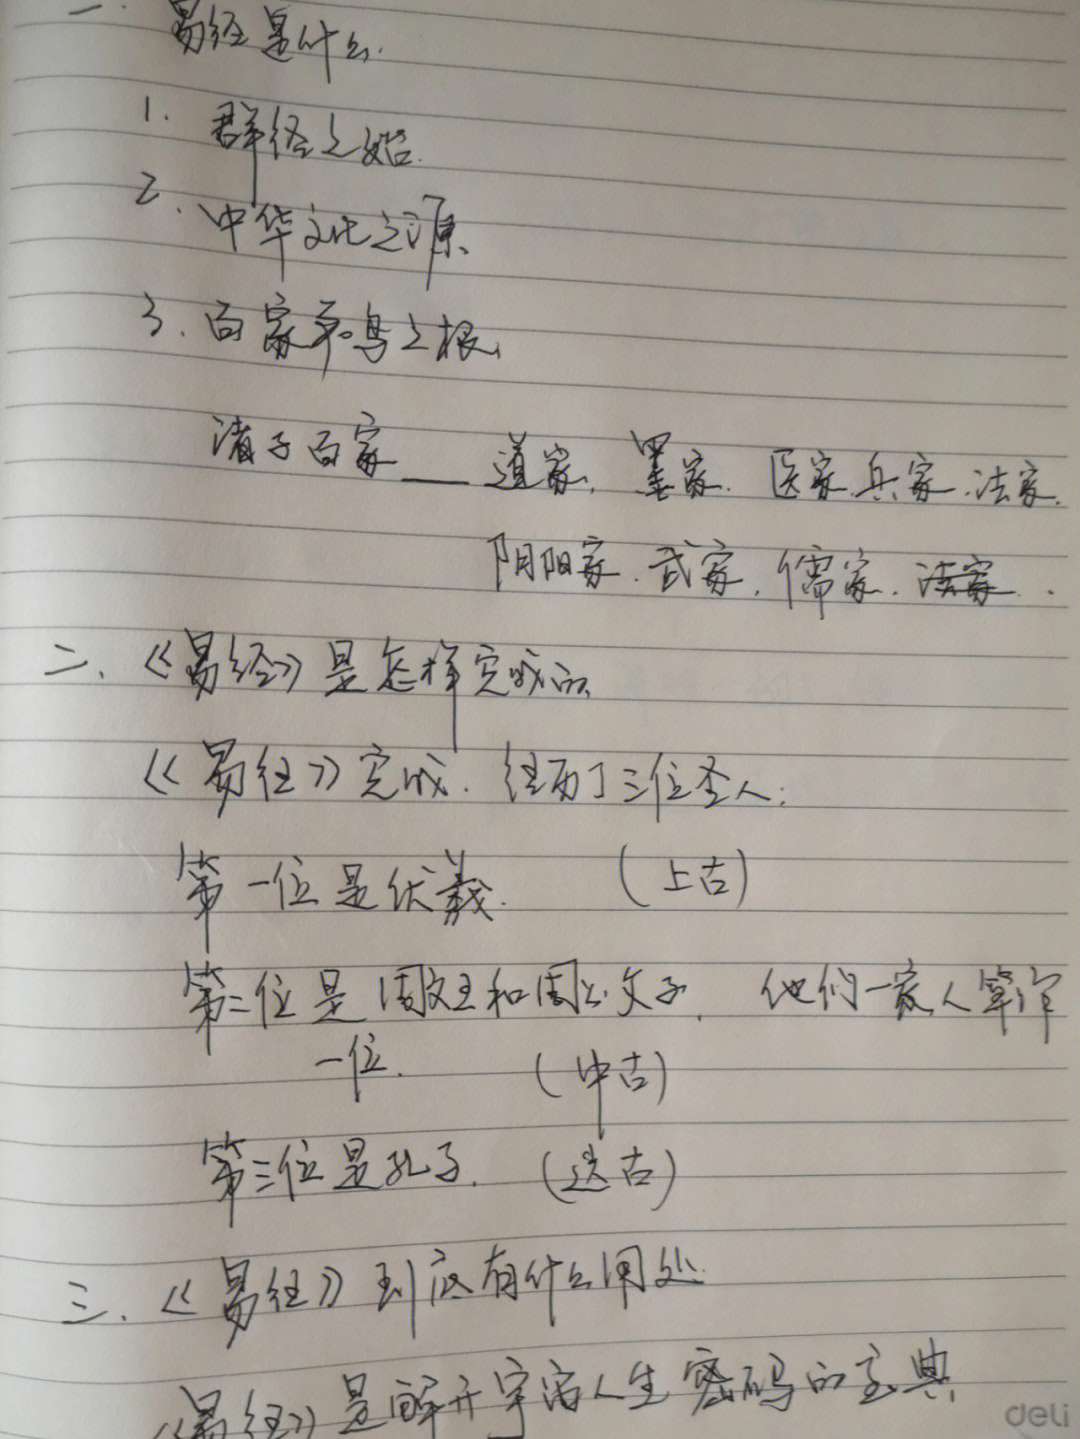 一. 易经是什么.
1. 群经之始.
2. 中华文化之源.
3. 百家争鸣之根.
诸子百家——道家. 墨家. 医家. 兵家. 法家.
阴阳家. 武家. 儒家.
二. 《易经》是怎样完成的
《易经》完成. 经历了三位圣人:
第一位是伏羲. (上古)
第二位是周文王和周公父子. 他们一家人算作
一位. (中古)
第三位是孔子. (古)
三. 《易经》到底有什么用处.
《易经》是解开宇宙人生密码的宝典
deli